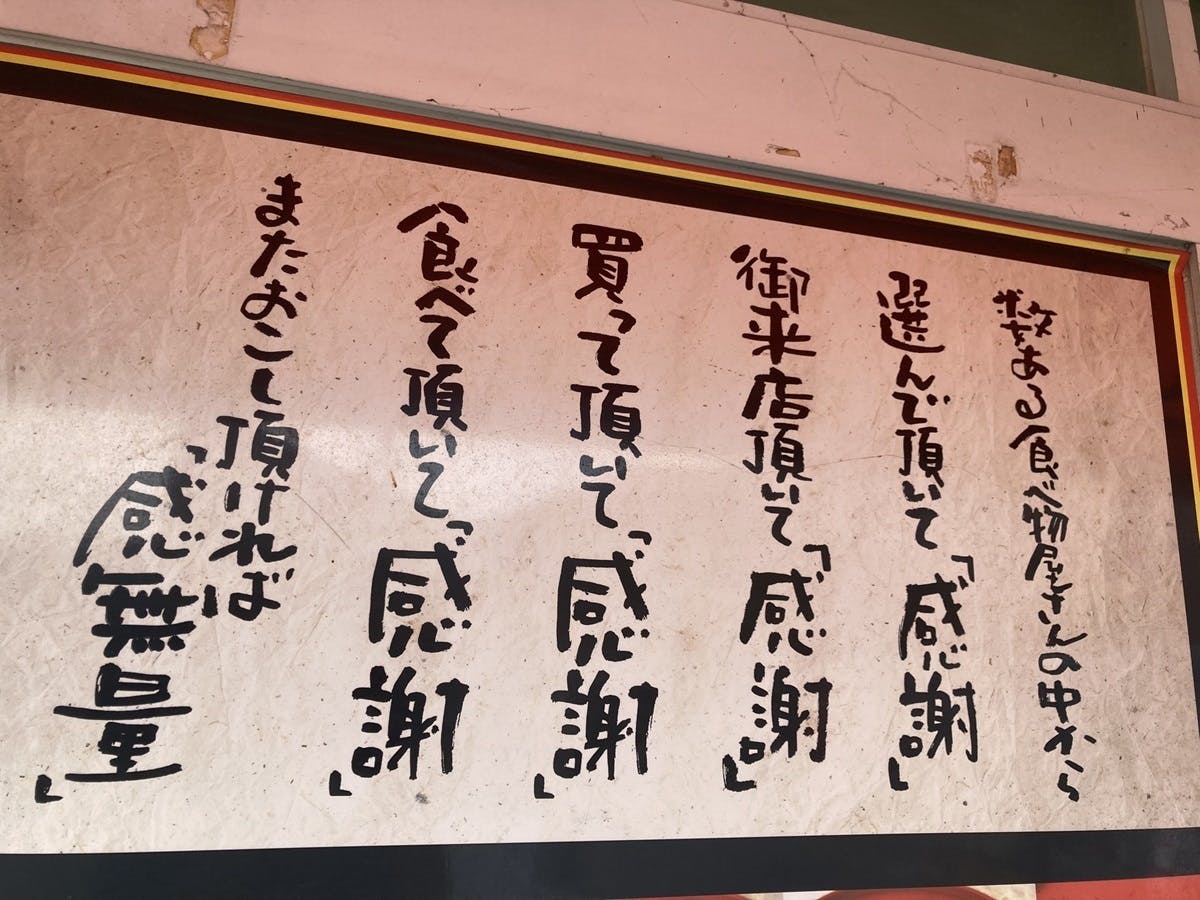 数ある食べ物屋さんの中から
選んで頂いて「感謝」
御来店頂いて「感謝」
買って頂いて「感謝」
食べて頂いて「感謝」
またおこし頂ければ
「感無量」